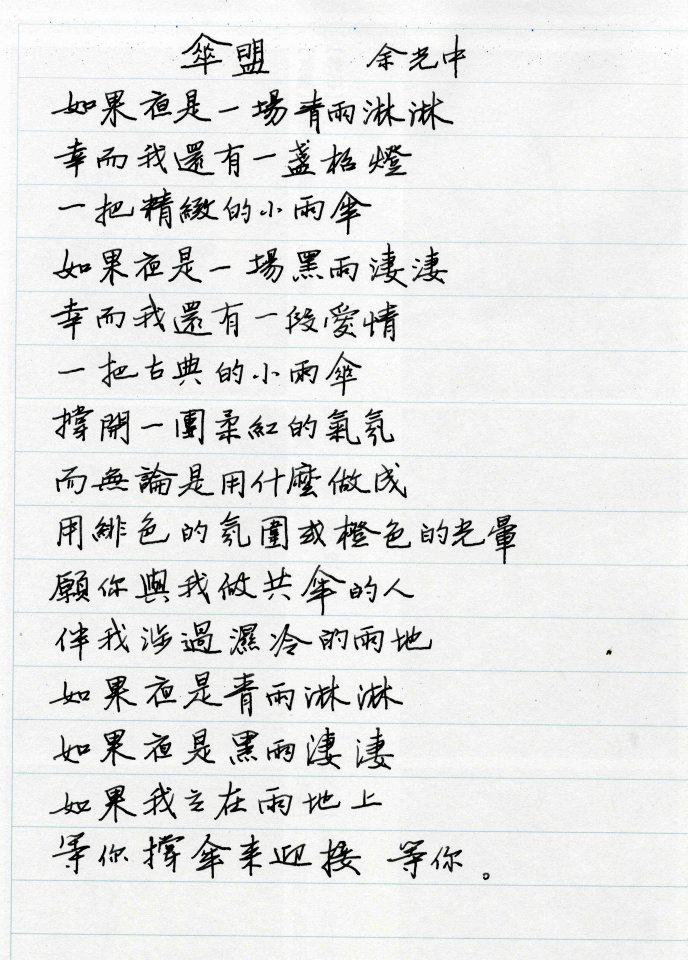 傘盟 余光中
如果夜是一場青雨淋淋
幸而我還有一盞枱燈
一把精緻的小雨傘
如果夜是一場黑雨淒淒
幸而我還有一段愛情
一把古典的小雨傘
撐開一團柔紅的氣氛
而無論是用什麼做成
用緋色的氛圍或橙色的光暈
願你與我做共傘的人
伴我涉過濕冷的雨地
如果夜是青雨淋淋
如果夜是黑雨淒淒
如果我立在雨地上
等你撐傘來迎接 等你。